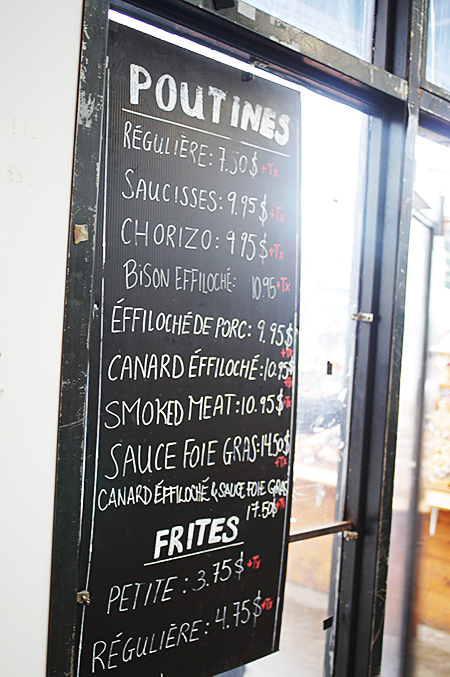 POUTINES
RÉGULIÈRE: 7.50$ +Tx
SAUCISSES: 9.95$ +Tx
CHORIZO: 9.95$ +Tx
BISON EFFILOCHÉ: 10.95 +Tx
ÉFFILOCHÉ DE PORC: 9.95$ +Tx
CANARD ÉFFILOCHÉ: 10.95$ +Tx
SMOKED MEAT: 10.95$ +Tx
SAUCE FOIE GRAS: 14.50$ +Tx
CANARD ÉFFILOCHÉ & SAUCE FOIE GRAS
17.50$ +Tx
FRITES
PETITE: 3.75$ +Tx
RÉGULIÈRE: 4.75$ +Tx